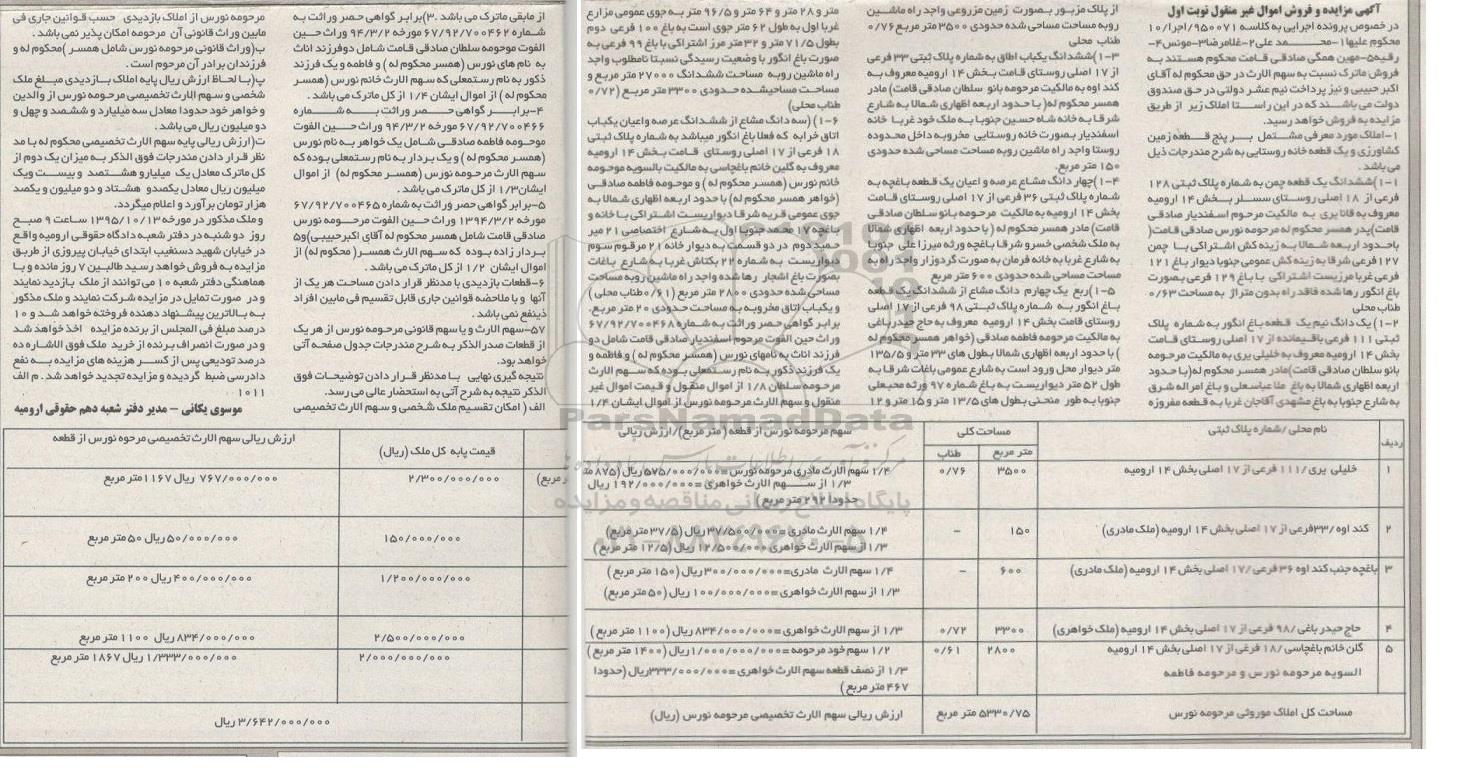 آگهی مزایده و فروش اموال غیر منقول نوبت اول
در خصوص پرونده اجرایی به کلاسه ۹۵۰۰۷۱/اجرا/۱۰
محکوم علیها۱-محمد علی۲-غلامرضا۳-مونس۴-
رقیه۵-مهین همگی صادقی قامت محکوم هستند به
فروش ماترک نسبت به سهم الارث در حق محکوم له آقای
اکبر حبیبی و نیز پرداخت نیم عشر دولتی در حق صندوق
دولت می باشند که در این راستا املاک زیر از طریق
مزایده به فروش خواهد رسید.
۱-املاک مورد معرفی مشتمل بر پنج قطعه زمین
کشاورزی و یک قطعه خانه روستایی به شرح مندرجات ذیل
می باشد.
۱-۱)ششدانگ یک قطعه چمن به شماره پلاک ثبتی ۱۲۸
فرعی از ۱۸ اصلی روستای سسلر بخش ۱۴ ارومیه
معروف به قانا یری به مالکیت مرحوم اسفندیار صادقی
قامت)پدر همسر محکوم له مرحومه نورس صادقی قامت(
باحدود اربعه شمالا به زینه کش اشتراکی با چمن
۱۲۷ فرعی شرقا به زینه کش عمومی جنوبا دیوار باغ ۱۲۱
فرعی غربا مرزیست اشتراکی با باغ ۱۲۹ فرعی بصورت
باغ انگور رها شده فاقد راه بدون متراژ به مساحت ۰/۶۳
طناب محلی
۱-۲)یک دانگ نیم یک قطعه باغ انگور به شماره پلاک
ثبتی ۱۱۱ فرعی باقیمانده از ۱۷ اصلی روستای قامت
بخش ۱۴ ارومیه معروف به خلیلی یری به مالکیت مرحومه
بانو سلطان صادقی قامت)مادر همسر محکوم له(با حدود
اربعه اظهاری شمالا به باغ ملا عباسعلی و باغ امراله شرق
به شارع جنوبا به باغ مشهدی آقاجان غربا به قطعه مفروزه
از پلاک مزبور بصورت زمین مزروعی واجد راه ماشین
روبه مساحت مساحی شده حدودی ۳۵۰۰ متر مربع ۰/۷۶
طناب محلی
۱-۳)ششدانگ یکباب اطاق به شماره پلاک ثبتی ۳۳ فرعی
از ۱۷ اصلی روستای قامت بخش ۱۴ ارومیه معروف به
کند اوه به مالکیت مرحومه بانو سلطان صادقی قامت) مادر
همسر محکوم له( با حدود اربعه اظهاری شمالا به شارع
شرقا به خانه شاه حسین جنوبا به ملک خود غربا خانه
اسفندیار بصورت خانه روستایی مخروبه داخل محدوده
روستا واجد راه ماشین روبه مساحت مساحی شده حدودی
۱۵۰ متر مربع.
۱-۴)چهار دانگ مشاع عرصه و اعیان یک قطعه باغچه به
شماره پلاک ثبتی ۳۶ فرعی از ۱۷ اصلی روستای قامت
بخش ۱۴ ارومیه به مالکیت مرحومه بانو سلطان صادقی
قامت) مادر همسر محکوم له ( با حدود اربعه اظهاری شمالا
به ملک شخصی خسرو شرقا باغچه ورثه میرزا علی جنوبا
به شارع غربا به خانه فرمان به صورت گردوزار واجد راه به
مساحت مساحی شده حدودی ۶۰۰ متر مربع
۱-۵) ربع یک چهارم دانگ مشاع از ششدانگ یک قطعه
باغ انگور به شماره پلاک ثبتی ۹۸ فرعی از ۱۷ اصلی
روستای قامت بخش ۱۴ ارومیه معروف به حاج حیدر باغی
به مالکیت مرحومه فاطمه صادقی (خواهر همسر محکوم له
) با حدود اربعه اظهاری شمالا بطول های ۳۳ متر و ۱۳۵/۵
متر دیوار محل ورود است به شارع عمومی باغات شرقا به
طول ۵۲ متر دیواریست به باغ شماره ۹۷ ورثه محبعلی
جنوبا به طور منحنی بطول های ۱۳/۵ متر و ۱۵ متر و ۱۲
متر و ۲۸ متر و ۶۴ متر و ۹۶/۵ متر به جوی عمومی مزارع
غربا اول به طول ۶۲ متر جوی است به باغ ۱۰۰ فرعی دوم
بطول ۷۱/۵ متر و ۳۲ متر مرز اشتراکی با باغ ۹۹ فرعی به
صورت باغ انگور با وضعیت رسیدگی نسبتا نامطلوب واجد
راه ماشین روبه مساحت ششدانگ ۲۷۰۰۰ متر مربع و
مساحت مساحیشده حدودی ۳۳۰۰ متر مربع (۰/۷۲
طناب محلی)
۱-۶) (سه دانگ مشاع از ششدانگ عرصه و اعیان یکباب
اتاق خرابه که فعلا باغ انگور میباشد به شماره پلاک ثبتی
۱۸ فرعی از ۱۷ اصلی روستای قامت بخش ۱۴ ارومیه
معروف به گلین خانم باغچاسی به مالکیت بالسویه موحومه
خانم نورس (همسر محکوم له) و موحومه فاطمه صادقی
(خواهر همسر محکوم له) با حدود اربعه اظهاری شمالا به
جوی عمومی قریه شرقا دیواریست اشتراکی با خانه و
باغچه ۱۷ محمد جنوبا اول به شارع اختصاصی ۲۱ میر
حمید دوم در دو قسمت به دیوار خانه ۲۱ مرقوم سوم
دیواریست به شماره ۲۲ بکتاش غربا به شارع باغات
بصورت باغ اشجار رها شده واجد راه ماشین روبه مساحت
مساحی شده حدودی ۲۸۰۰ متر مربع (۰/۶۱ طناب محلی)
و یکباب اتاق مخروبه به مساحت حدودی ۲۰ متر مربع.
برابر گواهی حصر وراثت به شماره ۶۷/۹۲/۷۰۰۴۶۸
وراث حین الفوت مرحوم اسفندیار صادقی قامت شامل دو
فرزند اناث به نامهای نورس (همسر محکوم له) و فاطمه و
یک فرزند ذکور به نام رستمعلی بوده که سهم الارث
مرحومه سلطان ۱/۸ از اموال منقول و قیمت اموال غیر
منقول و سهم الارث مرحومه نورس از اموال ایشان ۱/۴
از مابقی ماترک می باشد .۳)برابر گواهی حصر وراثت به
شماره ۶۷/۹۲/۷۰۰۴۶۲ مورخه ۹۴/۳/۲ وراث حین
الفوت موحومه سلطان صادقی قامت شامل دوفرزند اناث
به نام های نورس (همسر محکوم له) و فاطمه و یک فرزند
ذکور به نام رستمعلی که سهم الارث خانم نورس (همسر
محکوم له) از اموال ایشان ۱/۴ از کل ماترک می باشد.
۴-برابر گواهی حصر وراثت به شماره
۶۷/۹۲/۷۰۰۴۶۶ مورخه ۹۴/۳/۲ وراث حین الفوت
موحومه فاطمه صادقی شامل یک خواهر به نام نورس
(همسر محکوم له) و یک بردار به نام رستمعلی بوده که
سهم الارث مرحومه نورس (همسر محکوم له) از اموال
ایشان۱/۳ از کل ماترک می باشد.
۵-برابر گواهی حصر وراثت به شماره ۶۷/۹۲/۷۰۰۴۶۵
مورخه ۱۳۹۴/۳/۲ وراث حین الفوت مرحومه نورس
صادقی قامت شامل همسر محکوم له آقای اکبرحبیبی)و۵
بردار زاده بوده که سهم الارث همسر( محکوم له) از
اموال ایشان ۱/۲ از کل ماترک می باشد.
۶-قطعات بازدیدی با مدنظر قرار دادن مساحت هر یک از
آنها و با ملاحضه قوانین جاری قابل تقسیم فی مابین افراد
ذینفع نمی باشد.
۵۷-سهم الارث و یا سهم قانونی مرحومه نورس از هر یک
از قطعات صدر الذکر به شرح مندرجات جدول صفحه آتی
خواهد بود.
نتیجه گیری نهایی با مدنظر قرار دادن توضیحات فوق
الذکر نتیجه به شرح آتی به استحضار عالی می رسد.
الف ( امکان تقسیم ملک شخصی و سهم الارث تخصیصی
مرحومه نورس از املاک بازدیدی حسب قوانین جاری فی
مابین وراث قانونی آن مرحومه امکان پذیر نمی باشد.
ب(وراث قانونی مرحومه نورس شامل همسر )محکوم له و
فرزندان برادر آن مرحوم است.
پ(با لحاظ ارزش ریال پایه املاک بازدیدی مبلغ ملک
شخصی و سهم الارث تخصیصی مرحومه نورس از والدین
و خواهر خود حدودا معادل سه میلیارد و ششصد و چهل و
دو میلیون ریال می باشد.
ت(ارزش ریالی پایه سهم الارث تخصیصی محکوم له با مد
نظر قرار دادن مندرجات فوق الذکر به میزان یک دوم از
کل ماترک معادل یک میلیارو هشتصد و بیست ویک
میلیون ریال معادل یکصدو هشتاد و دو میلیون و یکصد
هزار تومان برآورد و اعلام میگردد.
و ملک مذکور در مورخه ۱۳۹۵/۱۰/۱۳ ساعت ۹ صبح
روز دو شنبه در دفتر شعبه دادگاه حقوقی ارومیه واقع
در خیابان شهید دستغیب ابتدای خیابان پیروزی از طریق
مزایده به فروش خواهد رسید طالبین ۷ روز مانده و با
هماهنگی دفتر شعبه ۱۰ می توانند از ملک بازدید نمایند
و در صورت تمایل در مزایده شرکت نمایند و ملک مذکور
به بالاترین پیشنهاد دهنده فروخته خواهد شد و ۱۰
درصد مبلغ فی المجلس از برنده مزایده اخذ خواهد شد
و در صورت انصراف برنده از خرید ملک فوق الاشاره ده
درصد تودیعی پس از کسر هزینه های مزایده به نفع
دادرسی ضبط گردیده و مزایده تجدید خواهد شد. م الف
۱۰۱۱
موسوی یکانی – مدیر دفتر شعبه دهم حقوقی ارومیه
ردیف نام محلی /شماره پلاک ثبتی مساحت کلی سهم مرحومه نورس از قطعه (متر مربع)/ارزش ریالی قیمت پایه کل ملک (ریال) ارزش ریالی سهم الارث تخصیصی مرحوه نورس از قطعه
متر مربع طناب
۱ خلیلی یری/۱۱۱ فرعی از ۱۷ اصلی بخش ۱۴ ارومیه ۳۵۰۰ ۰/۷۶ ۱/۴ سهم الارث مادری مرحومه نورس=۵۷۵/۰۰۰/۰۰۰ ریال (۸۷۵ مت ر مربع) ۲/۳۰۰/۰۰۰/۰۰۰ ۷۶۷/۰۰۰/۰۰۰ ریال ۱۱۶۷ متر مربع
۱/۳ از سهم الارث خواهری =۱۹۲/۰۰۰/۰۰۰ ریال
حدودا ۲۹۲ متر مربع)
۲ کند اوه/۳۳فرعی از ۱۷ اصلی بخش ۱۴ ارومیه (ملک مادری) ۱۵۰ – ۱/۴ سهم الارث مادری=۳۷/۵۰۰/۰۰۰ریال (۳۷/۵ متر مربع) ۱۵۰/۰۰۰/۰۰۰ ۵۰/۰۰۰/۰۰۰ ریال ۵۰ متر مربع
۱/۳ از سهم الارث خواهری=۱۲/۵۰۰/۰۰۰ ریال (۱۲/۵ متر مربع)
۳ باغچه جنب کند اوه ۳۶ فرعی/۱۷ اصلی بخش ۱۴ ارومیه (ملک مادری) ۶۰۰ – ۱/۴ سهم الارث مادری=۳۰۰/۰۰۰/۰۰۰ ریال (۱۵۰ متر مربع) ۱/۲۰۰/۰۰۰/۰۰۰ ۴۰۰/۰۰۰/۰۰۰ ریال ۲۰۰ متر مربع
۱/۳ از سهم الارث خواهری =۱۰۰/۰۰۰/۰۰۰ ریال (۵۰ متر مربع)
۴ حاج حیدر باغی /۹۸ فرعی از ۱۷ اصلی بخش ۱۴ ارومیه (ملک خواهری) ۳۳۰۰ ۰/۷۲ ۱/۳ از سهم الارث خواهری =۸۳۴/۰۰۰/۰۰۰ ریال (۱۱۰۰ متر مربع) ۲/۵۰۰/۰۰۰/۰۰۰ ۸۳۴/۰۰۰/۰۰۰ ریال ۱۱۰۰ متر مربع
۵ گلن خانم باغچاسی /۱۸ فرعی از ۱۷ اصلی بخش ۱۴ ارومیه ۲۸۰۰ ۰/۶۱ ۱/۲ سهم خود مرحومه =۱/۰۰۰/۰۰۰/۰۰۰ریال (۱۴۰۰ متر مربع) ۲/۰۰۰/۰۰۰/۰۰۰ ۱/۳۳۳/۰۰۰/۰۰۰ ریال ۱۸۶۷ متر مربع
السویه مرحومه نورس و مرحومه فاطمه ۱/۳ از نصف قطعه سهم الارث خواهری =۳۳۳/۰۰۰/۰۰۰ریال (حدودا
۴۶۷ متر مربع)
مساحت کل املاک موروثی مرحومه نورس ۵۳۳۰/۷۵ متر مربع ارزش ریالی سهم الارث تخصیصی مرحومه نورس (ریال) ۳/۶۴۲/۰۰۰/۰۰۰ ریال
ParsNamadData
پایگاه اطلاع رسانی مناقصه و مزایده